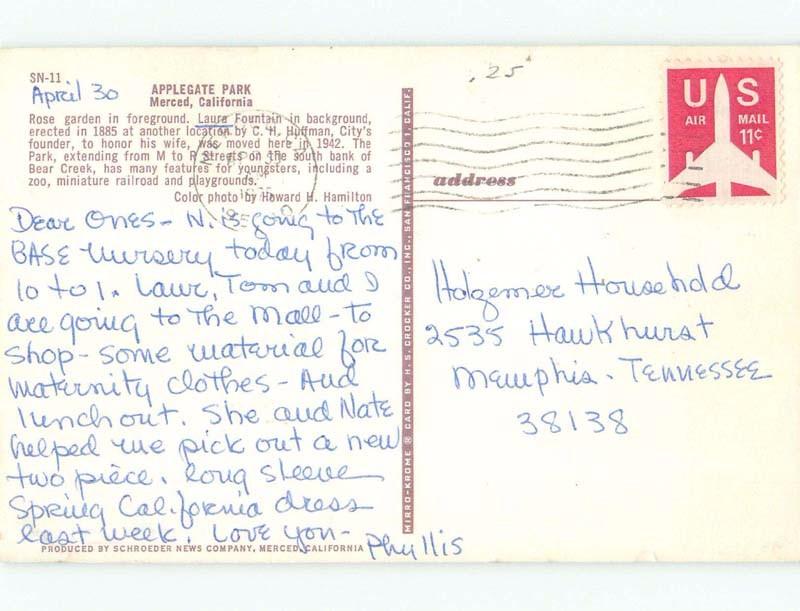 SN-11
April 30
APPLEGATE PARK
Merced, California
Rose garden in foreground. Laura Fountain in background,
erected in 1885 at another location by C. H. Huffman, City's
founder, to honor his wife, was moved here in 1942. The
Park, extending from M to R Streets on the south bank of
Bear Creek, has many features for youngsters, including a
zoo, miniature railroad and playgrounds.
Color photo by Howard H. Hamilton
Dear Ones - N. is going to the
BASE nursery today from
10 to 1. Laur, Tom and I
are going to the mall - to
shop - some material for
maternity clothes - And
lunch out. She and Nate
helped me pick out a new
two piece, long sleeve
Spring California dress
last week. Love you -
Phyllis
PRODUCED BY SCHROEDER NEWS COMPANY, MERCED, CALIFORNIA
MIRRO-KROME ® CARD BY H. S. CROCKER CO., INC., SAN FRANCISCO 1, CALIF.
.25
US
AIR MAIL
11¢
address
Holzemer Household
2535 Hawkhurst
Memphis - Tennessee
38138